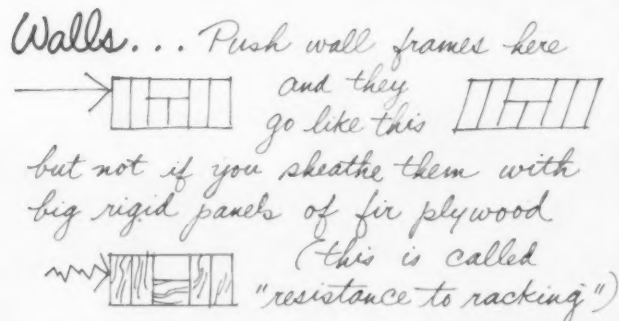 Walls... Push wall frames here
and they
go like this
but not if you sheathe them with
big rigid panels of fir plywood
(this is called
"resistance to racking")